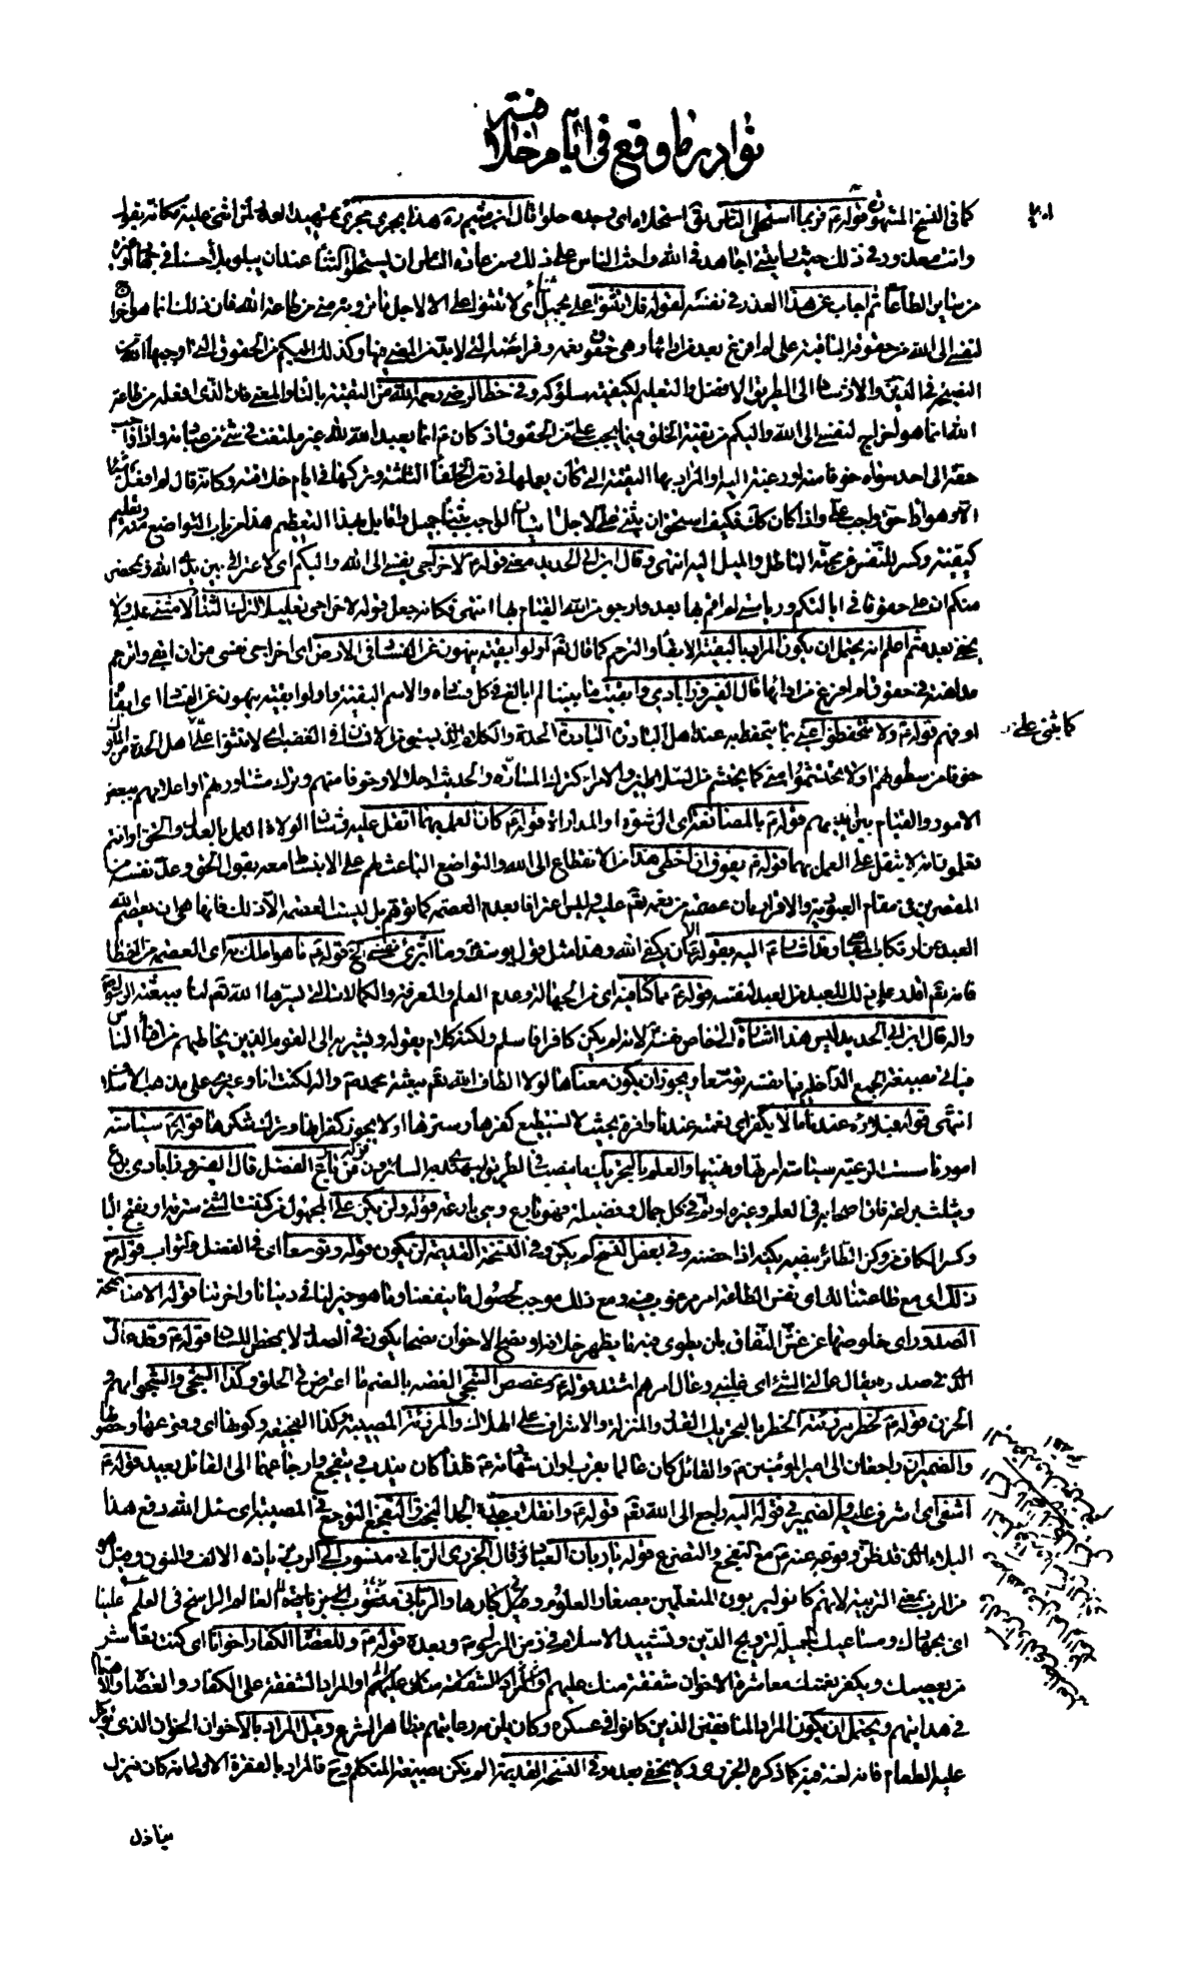 نوادر ما وقع في ايام خلافته
كما في النسخ المشهورة قوله ع فربما استحلى الناس يق استحلاه اى وجده حلوا قال ابن ميثم ره هذا يجرى مجرى تمهيد العذر لمن اثنى عليه فكانه يقول
وانت معذور في ذلك حيث رايتني اجاهد في الله واحث الناس على ذلك ومن عادة الناس ان يستحلوا الثناء عند ان يبلوا بلاء حسنا في جهاد او غيره
من ساير الطاعات ثم اجاب عن هذا العذر في نفسه بقوله فلا تثنوا على بجميل ثناء اى لا تثنوا على لاجل ما ترونه منى من طاعة الله فان ذلك انما هو اخراج
لنفسى الى الله من حقوقه الباقية على لم افرغ بعد من ادائها وهى حقوق نعمه وفرائضه التى لابد من المضى فيها وكذلك اليكم من الحقوق التى اوجبها الله من
النصيحة في الدين والارشاد الى الطريق الافضل والتعليم لكيفية سلوكه وفي خط الرضى رحمه الله من التقية بالتاء والمعنى فان الذى افعله من طاعة
الله انما هو اخراج لنفسى الى الله واليكم من تقية الخلق فيما يجب على من الحقوق اذ كان ع انما يعبد الله لله غير ملتفت في شئ من عبادته واداء واجب
حقه الى احد سواه خوفا منه او رغبة اليه او المراد بها التقية التى كان يعملها في زمن الخلفاء الثلثة وتركها في ايام خلافته وكانه قال لم افعل شيئا
الا وهو اداء حق واجب على واذا كان كك فكيف استحق ان يثنى على لاجل اتيان الواجب بثناء جميل واقابل بهذا التعظيم هذا من باب التواضع منه وتعليم
كيفيته وكسر للنفس عن محبة الباطل والميل اليه انتهى وقال ابن ابى الحديد معنى قوله ع لاخراجى نفسى الى الله واليكم اى لاعترافى بين يدى الله وبمحضر
منكم ان على حقوقا في ايالتكم ورياستى لم اقم بها بعد وارجو من الله القيام بها انتهى فكانه جعل قوله لاخراجى تعليلا لترك الثناء لا مثنى عليه ولا
يخفى بعده ثم اعلم انه يحتمل ان يكون المراد بالبقية الابقاء والترحم كما قال تع اولوا بقية ينهون عن الفساد في الارض اى اخراجى نفسى من ان ابقى واترحم
مداهنة في حقوق لم افرغ من ادائها قال الفيروزابادي وابقيت ما بيننا لم ابالغ في كل فساده والاسم البقية واولوا بقية ينهون عن الفساد اى ابقاء
او فهم قوله ع ولا تتحفظوا عنى بما يتحفظ به عند اهل البادرة البادرة الحدة والكلام الذى يسبق من الانسان في الغضب اى لا تثنوا على كما يثنى على اهل الحدة من الملوك
خوفا من سطوتهم او لا تحتشموا منى كما يحتشم من السلاطين والامراء كترك المسارة والحديث اجلالا وخوفا منهم وترك مشاورتهم او اعلامهم ببعض
الامور والقيام بين يديهم قوله ع بالمصانعة اى الرشوة او المداراة قوله ع كان العمل بهما اثقل عليه وشان الولاة العمل بالعدل والحق او انتم
تعلمون انه لا يثقل على العمل بهما قوله ع بفوق ان اخطى هذا من الانقطاع الى الله والتواضع الباعث لهم على الانبساط معه بقول الحق وعد نفسه من
المقصرين في مقام العبودية والاقرار بان عصمته من نعمه تعالى عليه وليس اعترافا بعدم العصمة كما توهم بل ليست العصمة الا ذلك فانها هى ان يعصم الله
العبد عن ارتكاب المعاصى وقد اشار ع اليه بقوله الا ان يكفى الله وهذا مثل قول يوسف ع وما ابرئ نفسى الخ قوله ع ما هو املك به اى العصمة من الخطاء
فانه تعالى اقدر على ذلك للعبد من العبد لنفسه قوله ع مما كنا فيه اى من الجهالة وعدم العلم والمعرفة والكمالات التى يسرها الله تعالى لنا ببعثة الرسول صلى الله عليه
واله قال ابن ابى الحديد ليس هذا اشارة الى خاص نفسه ع لانه لم يكن كافرا فاسلم ولكنه كلام يقوله ويشير به الى القوم الذين يخاطبهم من افناء الناس
فياتى بصيغة الجمع الداخلة فيها نفسه توسعا ويجوز ان يكون معناها لولا الطاف الله تعالى ببعثة محمد ص واله لكنت انا وغيرى على مذهب الاسلاف
انتهى قوله فبلاؤه عندنا ما لا يكفر اى نعمته عندنا وافرة بحيث لا نستطيع كفرها وسترها او لا يجوز كفرانها وترك شكرها قوله ع سياسة
امورنا سست الرعية سياسة امرتها ونهيتها والعلم بالتحريك ما ينصب في الطريق ليهتدى به السائرون قوله من بارع الفضل قال الفيروزابادى برع
ويثلث براعة فاق اصحابه في العلم وغيره او تم في كل جمال وفضيلة فهو بارع وهى بارعة قوله ولن يكن على المجهول من كننت الشئ سترته او بفتح الياء
وكسر الكاف من وكن الطائر بيضه يكنه اذا حضنه وفي بعض النسخ لم يكن وفي النسخة القديمة لن يكون قوله وتوسعا اى في الفضل والثواب قوله مع
ذلك اى مع طاعتنا لك اى نفس الطاعة امر مرغوب فيه ومع ذلك موجب لحصول ما ينفعنا وما هو خير لنا في دنيانا واخرتنا قوله الا مناصحة
الصدور اى خلوصها عن غش النفاق بان يطوى فيه ما يظهر خلافه او نصح الاخوان نصحا يكون في الصدر لا بمحض اللسان قوله ع وقد عال
الذى في صدره يقال عالنى الشئ اى غلبنى وعال امرهم اشتد قوله ع وغصص الشجى الغصة بالضم ما اعترض في الحلق وكذا الشجى والشجو الهم و
الحزن قوله ع لخطر مرزئته الخطر بالتحريك القدر والمنزلة والاشراف على الهلاك والمرزئة المصيبة وكذا الفجيعة وكونها اى وقوعها وحصولها
والضميران راجعان الى امير المؤمنين ع والقائل كان عالما بقرب اوان شهادته ع فلذا كان يندب ويتفجع وارجاعهما الى القائل بعيد قوله ع
اشفى اى اشرف عليه والضمير في قوله اليه راجع الى الله تعالى قوله ع وانقلاب جده الجد البخت والتفجع التوجع في المصيبة اى سئل الله دفع هذا
البلاء الذى قد ظن وقوعه عنه ع مع التفجع والتضرع قوله يا ربانى العباد قال الجزرى الربانى منسوب الى الرب بزيادة الالف والنون وقيل هو
من الرب بمعنى التربية لانهم كانوا يربون المتعلمين بصغار العلوم قبل كبارها والربانى العالم الراسخ في العلم
اى بجهادك ومساعيك الجميلة لترويج الدين وتشييد الاسلام في زمن الرسول ص وبعده قوله ع وللعصاة الكفار اخوانا اى كنت تعاشر
من يعصيك ويكفر نعمتك معاشرة الاخوان شفقة منك عليهم او المراد الشفقة على الكفار والعصاة والاهتمام
في هدايتهم ويحتمل ان يكون المراد المنافقين الذين كانوا في عسكره وكان يلزمه رعايتهم بظاهر الشرع وقيل المراد بالاخوان الخوان الذى يؤكل
عليه الطعام فانه لغة فيه كما ذكره الجزرى ولا يخفى بعده وفي النسخة القديمة الم نكن بصيغة المتكلم وح فالمراد بالفقرة الاولى انه كان ينزل
بنا ذل
كما يثنى على